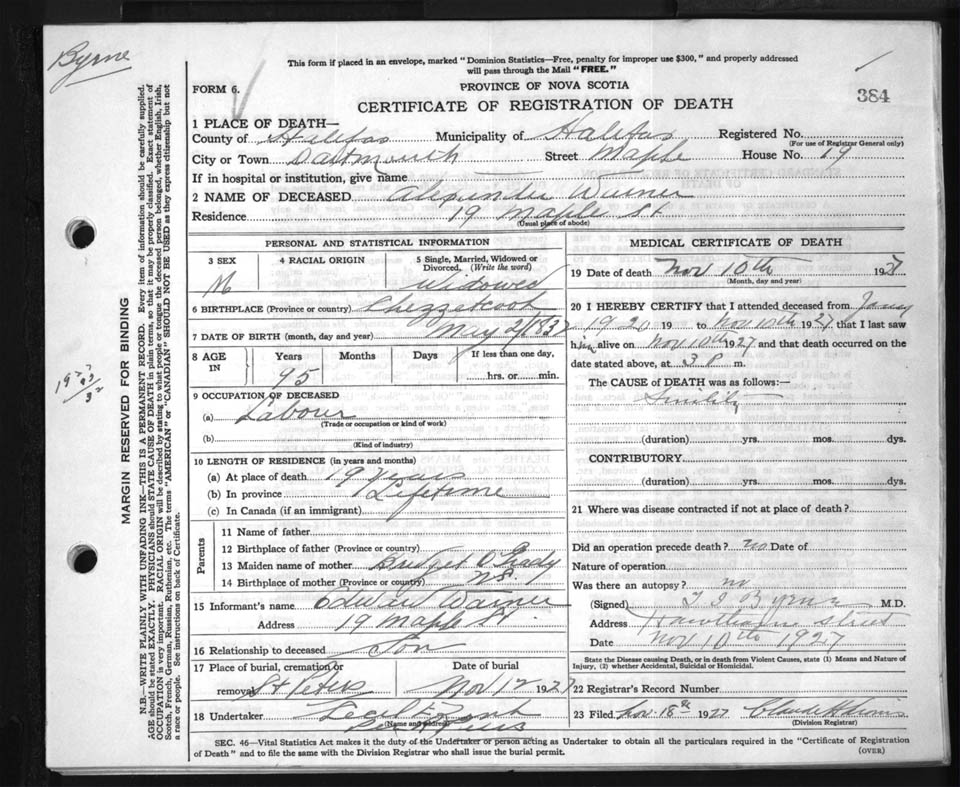 Byrne
This form if placed in an envelope, marked "Dominion Statistics—Free, penalty for improper use $300," and properly addressed
will pass through the Mail "FREE."
FORM 6.
PROVINCE OF NOVA SCOTIA
384
CERTIFICATE OF REGISTRATION OF DEATH
1 PLACE OF DEATH—
County of Halifax Municipality of Halifax Registered No.
(For use of Registrar General only)
City or Town Dartmouth Street Maple House No. 19
If in hospital or institution, give name
2 NAME OF DECEASED Alexander Warner
Residence 19 Maple St
(Usual place of abode)
PERSONAL AND STATISTICAL INFORMATION
3 SEX 4 RACIAL ORIGIN 5 Single, Married, Widowed or
Divorced. (Write the word)
M Widowed
6 BIRTHPLACE (Province or country) Chezzetcook
7 DATE OF BIRTH (month, day and year) May 2/1832
8 AGE IN Years Months Days If less than one day,
95 hrs. or min.
9 OCCUPATION OF DECEASED
(a) Labour
(Trade or occupation or kind of work)
(b)
(Kind of industry)
10 LENGTH OF RESIDENCE (in years and months)
(a) At place of death 19 years
(b) In province Lifetime
(c) In Canada (if an immigrant)
Parents
11 Name of father
12 Birthplace of father (Province or country)
13 Maiden name of mother Bridget O'Grady
14 Birthplace of mother (Province or country) N.S.
15 Informant's name Edward Warner
Address 19 Maple St.
16 Relationship to deceased Son
17 Place of burial, cremation or Date of burial
removal St Peters Nov 12 1927
18 Undertaker Cecil E.
(Name and address)
MEDICAL CERTIFICATE OF DEATH
19 Date of death Nov 10th 1927
(Month, day and year)
20 I HEREBY CERTIFY that I attended deceased from Jany
1920 19 to Nov 10th 1927 that I last saw
him alive on Nov 10th 1927 and that death occurred on the
date stated above, at 3 P m.
The CAUSE of DEATH was as follows:
Senility
(duration) yrs. mos. dys.
CONTRIBUTORY
(duration) yrs. mos. dys.
21 Where was disease contracted if not at place of death?
Did an operation precede death? no Date of
Nature of operation
Was there an autopsy? no
(Signed) T I Byrne M.D.
Address Hawthorne Street
Date Nov 10th 1927
State the Disease causing Death, or in death from Violent Causes, state (1) Means and Nature of
Injury, (2) whether Accidental, Suicidal or Homicidal.
22 Registrar's Record Number
23 Filed Nov. 18th 1927
(Division Registrar)
SEC. 46—Vital Statistics Act makes it the duty of the Undertaker or person acting as Undertaker to obtain all the particulars required in the "Certificate of Registration
of Death" and to file the same with the Division Registrar who shall issue the burial permit.
(OVER)
MARGIN RESERVED FOR BINDING
N.B.—WRITE PLAINLY WITH UNFADING INK—THIS IS A PERMANENT RECORD. Every item of information should be carefully supplied.
AGE should be stated EXACTLY. PHYSICIANS should STATE CAUSE OF DEATH in plain terms, so that it may be properly classified. Exact statement of
OCCUPATION is very important. RACIAL ORIGIN will be described by stating to what people or tongue the deceased person belonged, whether English, Irish,
Scotch, French, German, Russian, Ruthenian, etc. The terms "AMERICAN" or "CANADIAN" SHOULD NOT BE USED as they express citizenship but not
a race or people. See instructions on back of Certificate.